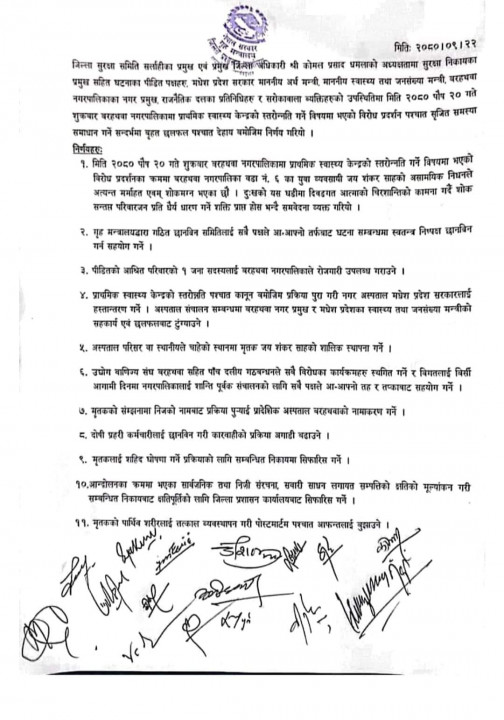 नेपाल सरकार
गृह मन्त्रालय
मितिः २०८०।०९।२२
जिल्ला सुरक्षा समिति सर्लाहीका प्रमुख एवं प्रमुख जिल्ला अधिकारी श्री कोमल प्रसाद धमलाको अध्यक्षतामा सुरक्षा निकायका
प्रमुख सहित घटनाका पीडित पक्षहरु, मधेश प्रदेश सरकार माननीय अर्थ मन्त्री, माननीय स्वास्थ्य तथा जनसंख्या मन्त्री, बरहथवा
नगरपालिकाका नगर प्रमुख, राजनैतिक दलका प्रतिनिधिहरु र सरोकावाला व्यक्तिहरुको उपस्थितिमा मिति २०८० पौष २० गते
शुक्रबार बरहथवा नगरपालिकामा प्राथमिक स्वास्थ्य केन्द्रको स्तरोन्नति गर्ने विषयमा भएको विरोध प्रदर्शन पश्चात सृजित समस्या
समाधान गर्ने सन्दर्भमा बृहत छलफल पश्चात देहाय बमोजिम निर्णय गरियो ।
निर्णयहरुः
१. मिति २०८० पौष २० गते शुक्रबार बरहथवा नगरपालिकामा प्राथमिक स्वास्थ्य केन्द्रको स्तरोन्नति गर्ने विषयमा भएको
विरोध प्रदर्शनका क्रममा बरहथवा नगरपालिका वडा नं. ६ का युवा व्यवसायी जय शंकर साहको असामयिक निधनले
अत्यन्त मर्माहत एवम् शोकमग्न भएका छौं । दुःखको यस घडीमा दिवङ्गत आत्माको चिरशान्तिको कामना गर्दै शोक
सन्तप्त परिवारजन प्रति धैर्य धारण गर्ने शक्ति प्राप्त होस भन्दै समवेदना व्यक्त गरियो ।
२. गृह मन्त्रालयद्वारा गठित छानविन समितिलाई सबै पक्षले आ-आफ्नो तर्फबाट घटना सम्बन्धमा स्वतन्त्र निष्पक्ष छानविन
गर्न सहयोग गर्ने ।
३. पीडितको आश्रित परिवारको १ जना सदस्यलाई बरहथवा नगरपालिकाले रोजगारी उपलब्ध गराउने ।
४. प्राथमिक स्वास्थ्य केन्द्रको स्तरोन्नति पश्चात कानून बमोजिम प्रकिया पुरा गरी नगर अस्पताल मधेश प्रदेश सरकारलाई
हस्तान्तरण गर्ने । अस्पताल संचालन सम्बन्धमा बरहथवा नगर प्रमुख र मधेश प्रदेशका स्वास्थ्य तथा जनसंख्या मन्त्रीको
सहकार्य एवं छलफलबाट टुंग्याउने ।
५. अस्पताल परिसर वा स्थानीयले चाहेको स्थानमा मृतक जय शंकर साहको शालिक स्थापना गर्ने ।
६. उद्योग वाणिज्य संघ बरहथवा सहित पाँच दलीय गठबन्धनले सबै विरोधका कार्यकमहरू स्थगित गर्ने र विगतलाई बिर्सी
आगामी दिनमा नगरपालिकालाई शान्ति पूर्वक संचालनको लागि सबै पक्षले आ-आफ्नो तह र तप्काबाट सहयोग गर्ने ।
७. मृतकको संम्झनामा निजको नामबाट प्रकिया पुर्‍याई प्रादेशिक अस्पताल बरहथवाको नामाकरण गर्ने ।
८. दोषी प्रहरी कर्मचारीलाई छानविन गरी कारवाहीको प्रक्रिया अगाडी बढाउने ।
९. मृतकलाई शहिद घोषणा गर्ने प्रक्रियाको लागि सम्बन्धित निकायमा सिफारिस गर्ने ।
१०.आन्दोलनका क्रममा भएका सार्वजनिक तथा निजी संरचना, सवारी साधन लगायत सम्पत्तिको क्षतिको मूल्यांकन गरी
सम्बन्धित निकायबाट क्षतिपूर्तिको लागि जिल्ला प्रशासन कार्यालयबाट सिफारिस गर्ने ।
११. मृतकको पार्थिव शरीरलाई तत्काल व्यवस्थापन गरी पोस्टमार्टम पश्चात आफन्तलाई बुझाउने ।